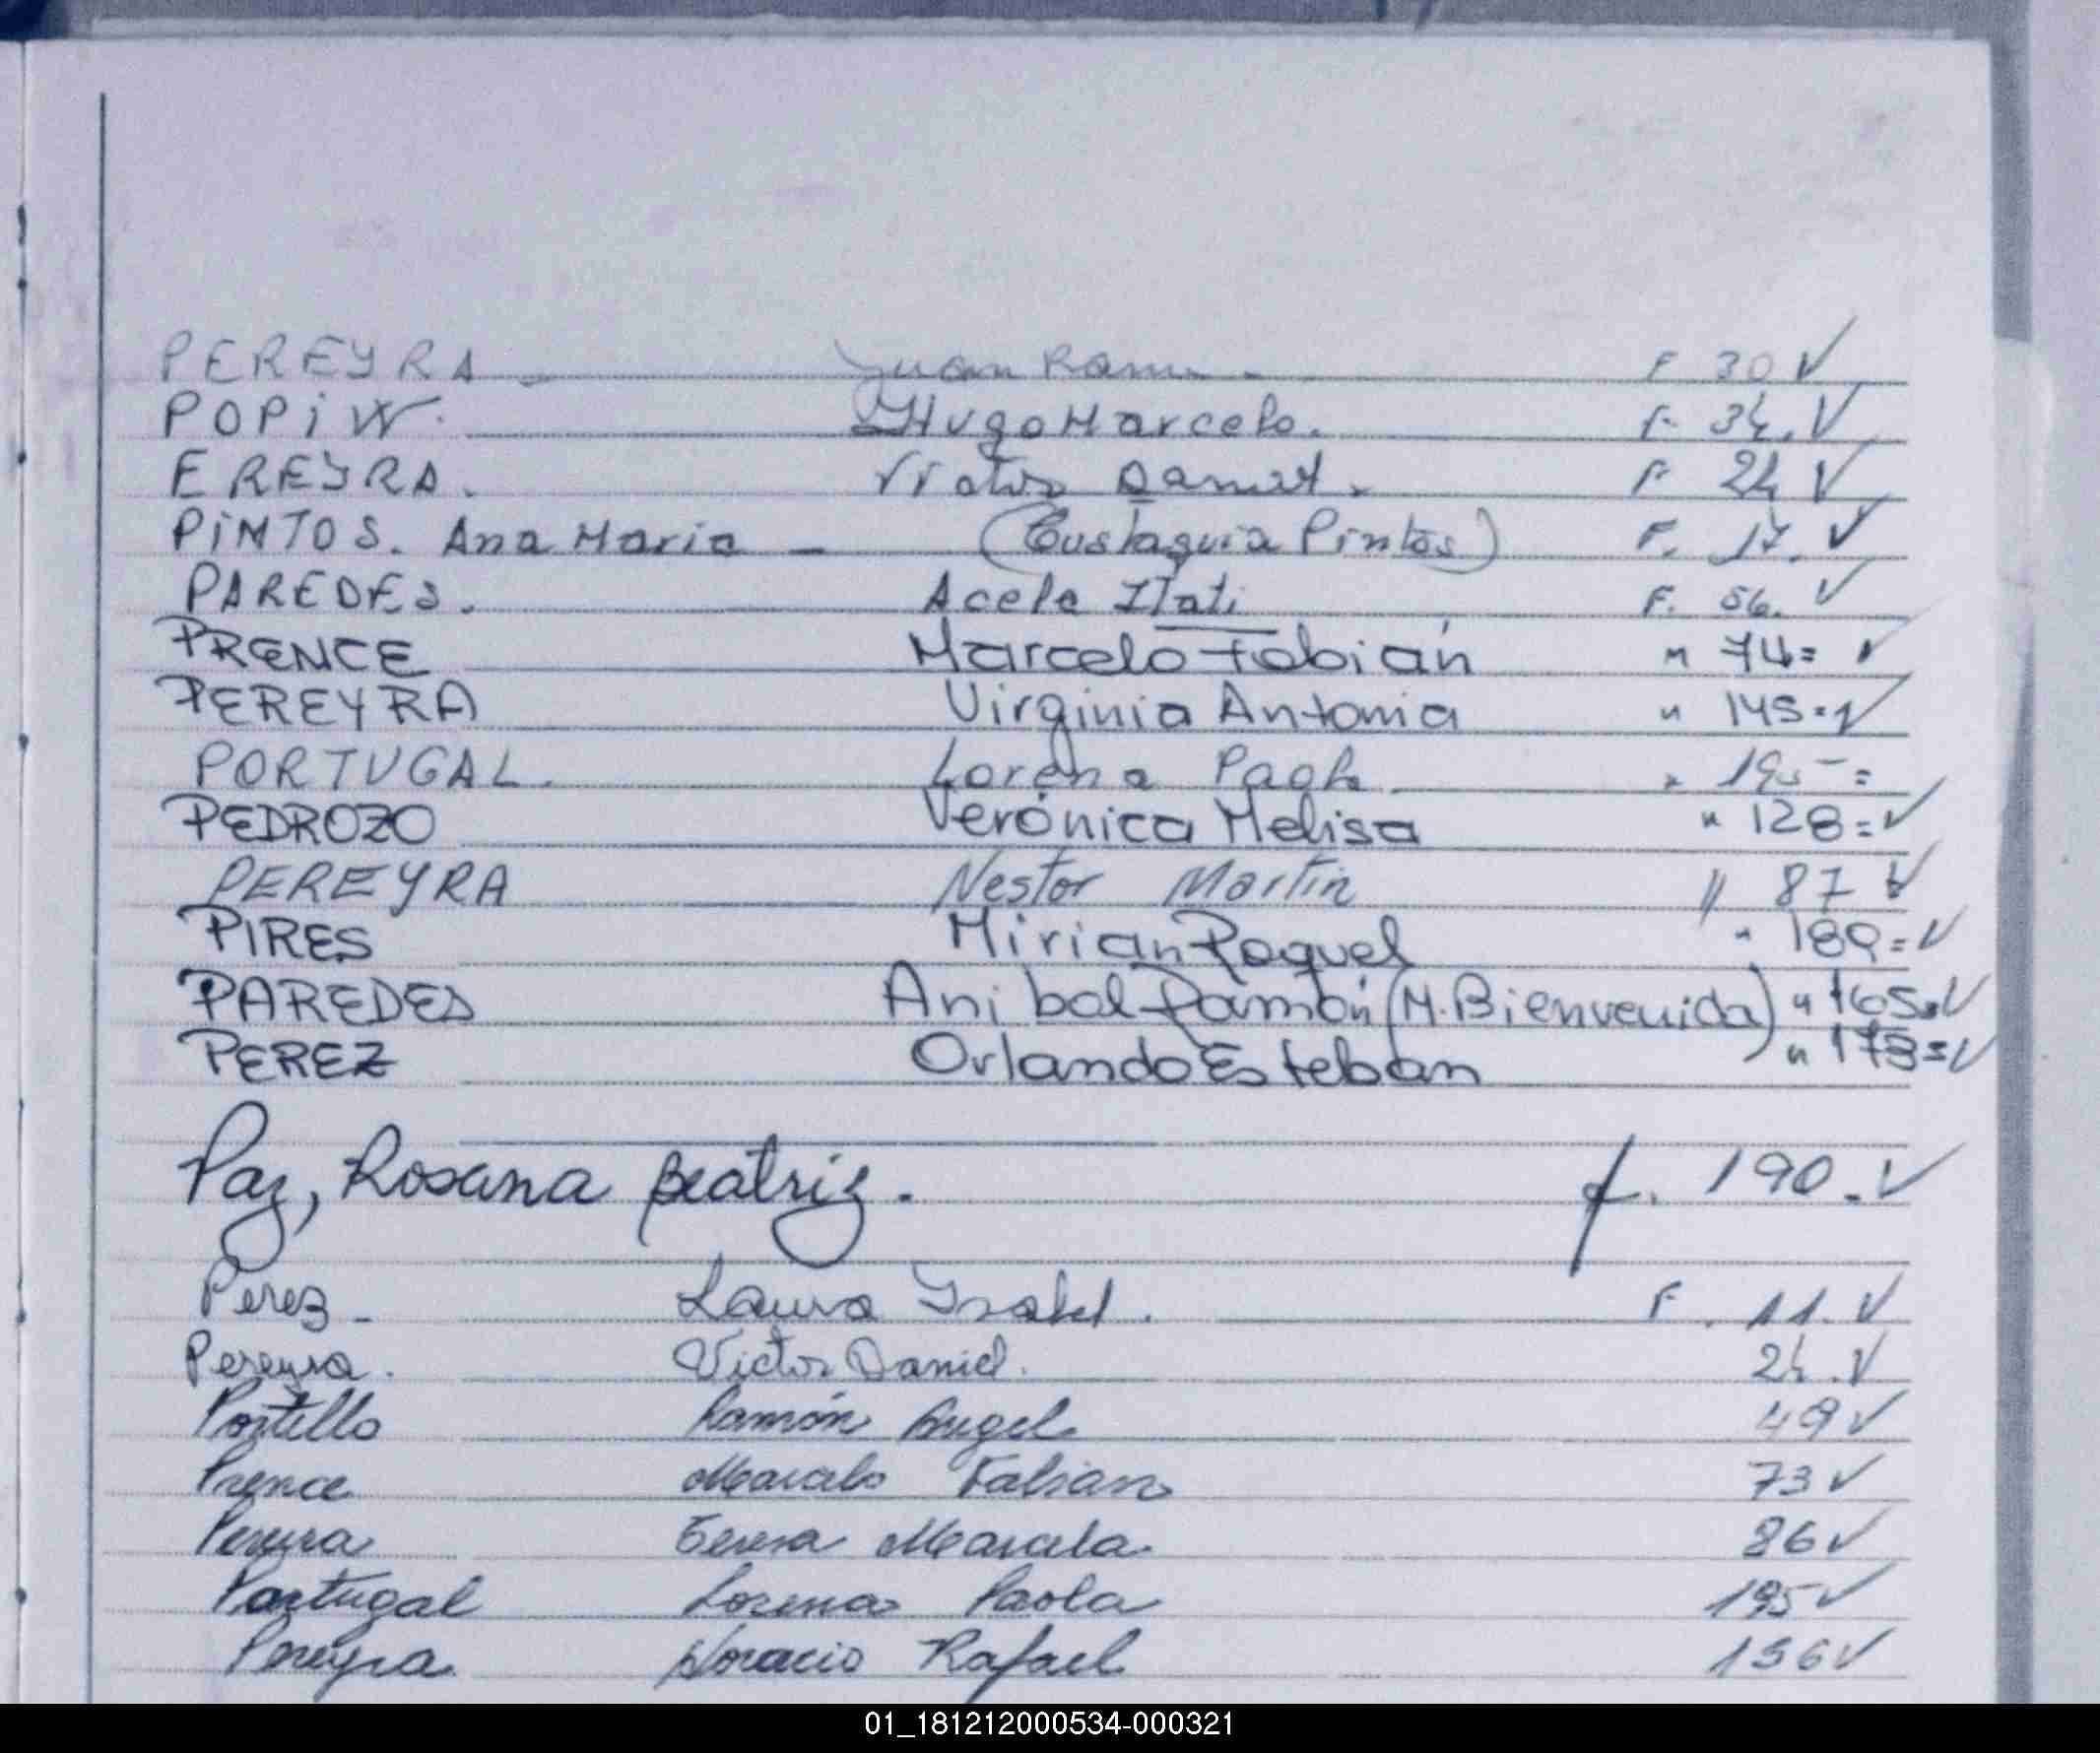 PEREYRA _ Juan Ram F 30 ✓
POPiW. Hugo Marcelo. F. 34. ✓
EREYRA. Victor Daniel. F 24 ✓
PiNTOS. Ana Maria — (Eustaquia Pintos) F. 17. ✓
PAREDES. Acela ITati F. 56. ✓
PRENCE Marcelo Fabián " 74= ✓
PEREYRA Virginia Antonia " 145=✓
PORTUGAL. Lorena Paola " 195=
PEDROZO Verónica Melisa " 128=✓
PEREYRA Nestor Martín // 87 ✓
PIRES Mirian Raquel " 189=✓
PAREDES Anibal Ramón (M. Bienvenida) " 165=✓
PEREZ Orlando Esteban " 173=✓
Paz, Rosana Beatriz. f. 190.✓
Perez _ Laura Isabel. F. 11. ✓
Pereyra. Victor Daniel. 24. ✓
Portillo Ramón Angel 49✓
Prence Marcelo Fabian 73✓
Pereira Teresa Marcela. 86✓
Portugal Lorena Paola 195✓
Pereyra Horacio Rafael 196✓
01_181212000534-000321